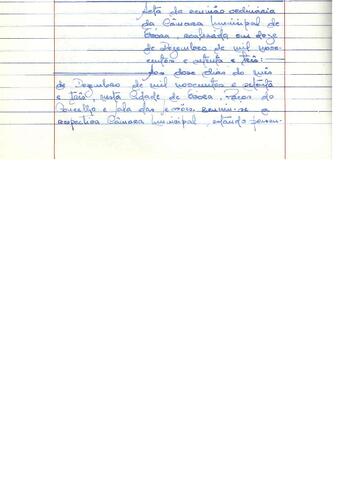 Acta da reunião ordinária
da Câmara Municipal de
Évora, realizada em doze
de Dezembro de mil nove-
centos e setenta e três:
Aos doze dias do mês
de Dezembro de mil novecentos e setenta
e três, nesta Cidade de Évora, Paços do
Concelho e sala das sessões reuniu-se a
respectiva Câmara Municipal, estando presen-